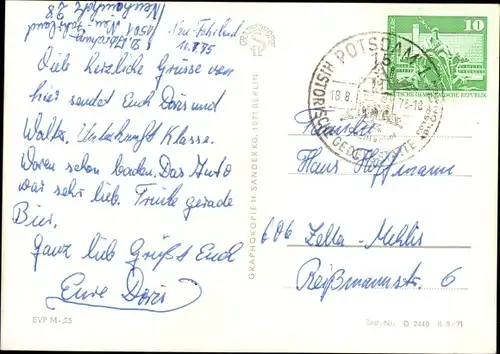 Neu-Fahrland
11.8.75
Viele herzliche Grüsse von
hier sendet Euch Doris und
Walter. Unterkunft Klasse.
Waren schon baden. Das Auto
war sehr lieb. Trinke gerade
Bier.
Ganz lieb Grüßt Euch
Eure Doris
EVP M -,25
GRAPHOKOPIE H. SANDER KG, 1971 BERLIN
POTSDAM 1
15
HISTORISCHE GEDENKSTÄTTE
10
DEUTSCHE DEMOKRATISCHE REPUBLIK
Familie
Hans Hoffmann
606 Zella-Mehlis
Reißmannstr. 6
Bestell-Nr. D 2440 B 8/71